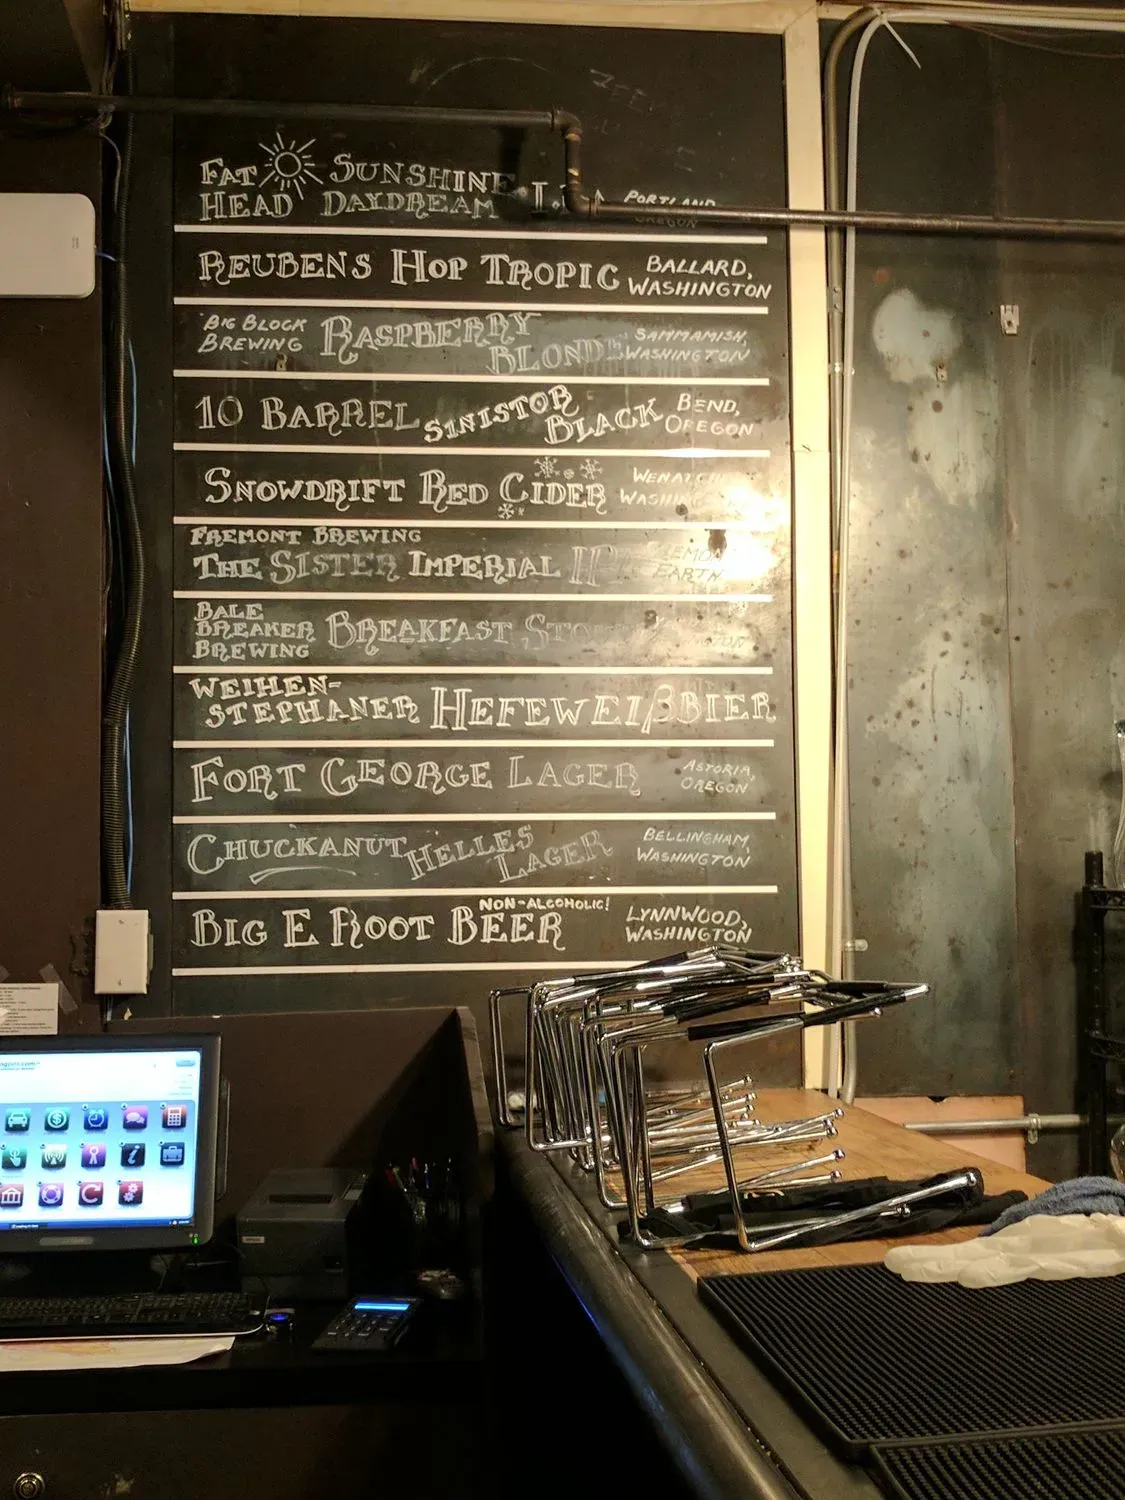 FAT SUNSHINE
HEAD DAYDREAM PORTLAND
OREGON
REUBENS HOP TROPIC BALLARD,
WASHINGTON
BIG BLOCK
BREWING RASPBERRY
BLONDE SAMMAMISH,
WASHINGTON
10 BARREL SINISTOR
BLACK BEND,
OREGON
SNOWDRIFT RED CIDER
FREMONT BREWING
THE SISTER IMPERIAL
EARTH
BALE
BREAKER
BREWING BREAKFAST
WEIHEN-
STEPHANER HEFEWEIßBIER
FORT GEORGE LAGER ASTORIA,
OREGON
CHUCKANUT HELLES
LAGER BELLINGHAM,
WASHINGTON
NON-ALCOHOLIC!
BIG E ROOT BEER LYNNWOOD,
WASHINGTON